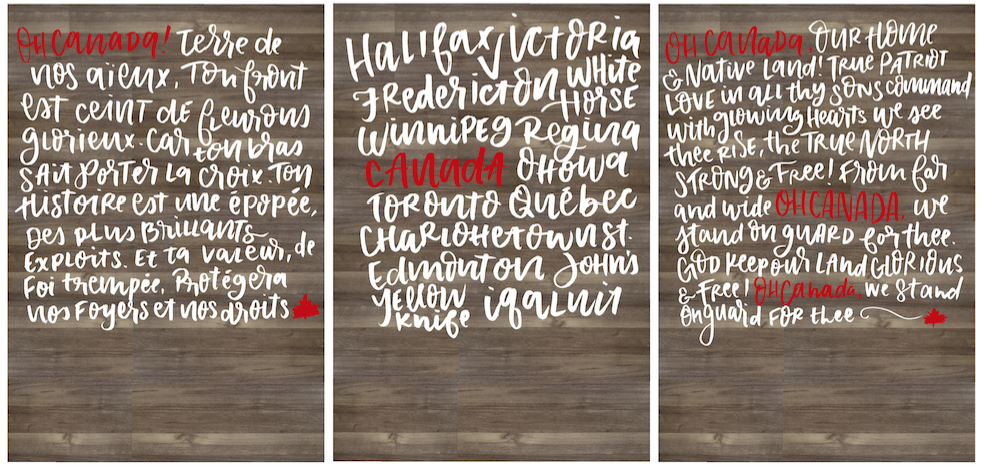 OH Canada! Terre de
nos aieux, Ton front
est ceint de fleurons
glorieux. Car ton bras
sait porter la croix. Ton
Histoire est une épopée,
Des plus Brillants
Exploits. Et ta valeur, de
Foi trempée, Protégera
nos Foyers et nos droits
Halifax Victoria
Fredericton White
Horse
Winnipeg Regina
CANADA Ottawa
Toronto Québec
Charlottetown St.
Edmonton John's
Yellow
Knife iqaluit
OH Canada, Our Home
& Native Land! True Patriot
Love in all thy sons command
with glowing Hearts we see
thee Rise, the True North
Strong & Free! From far
and wide OH CANADA, we
stand on guard for thee.
God Keep our Land Glorious
& Free! OH Canada, we stand
on guard For thee